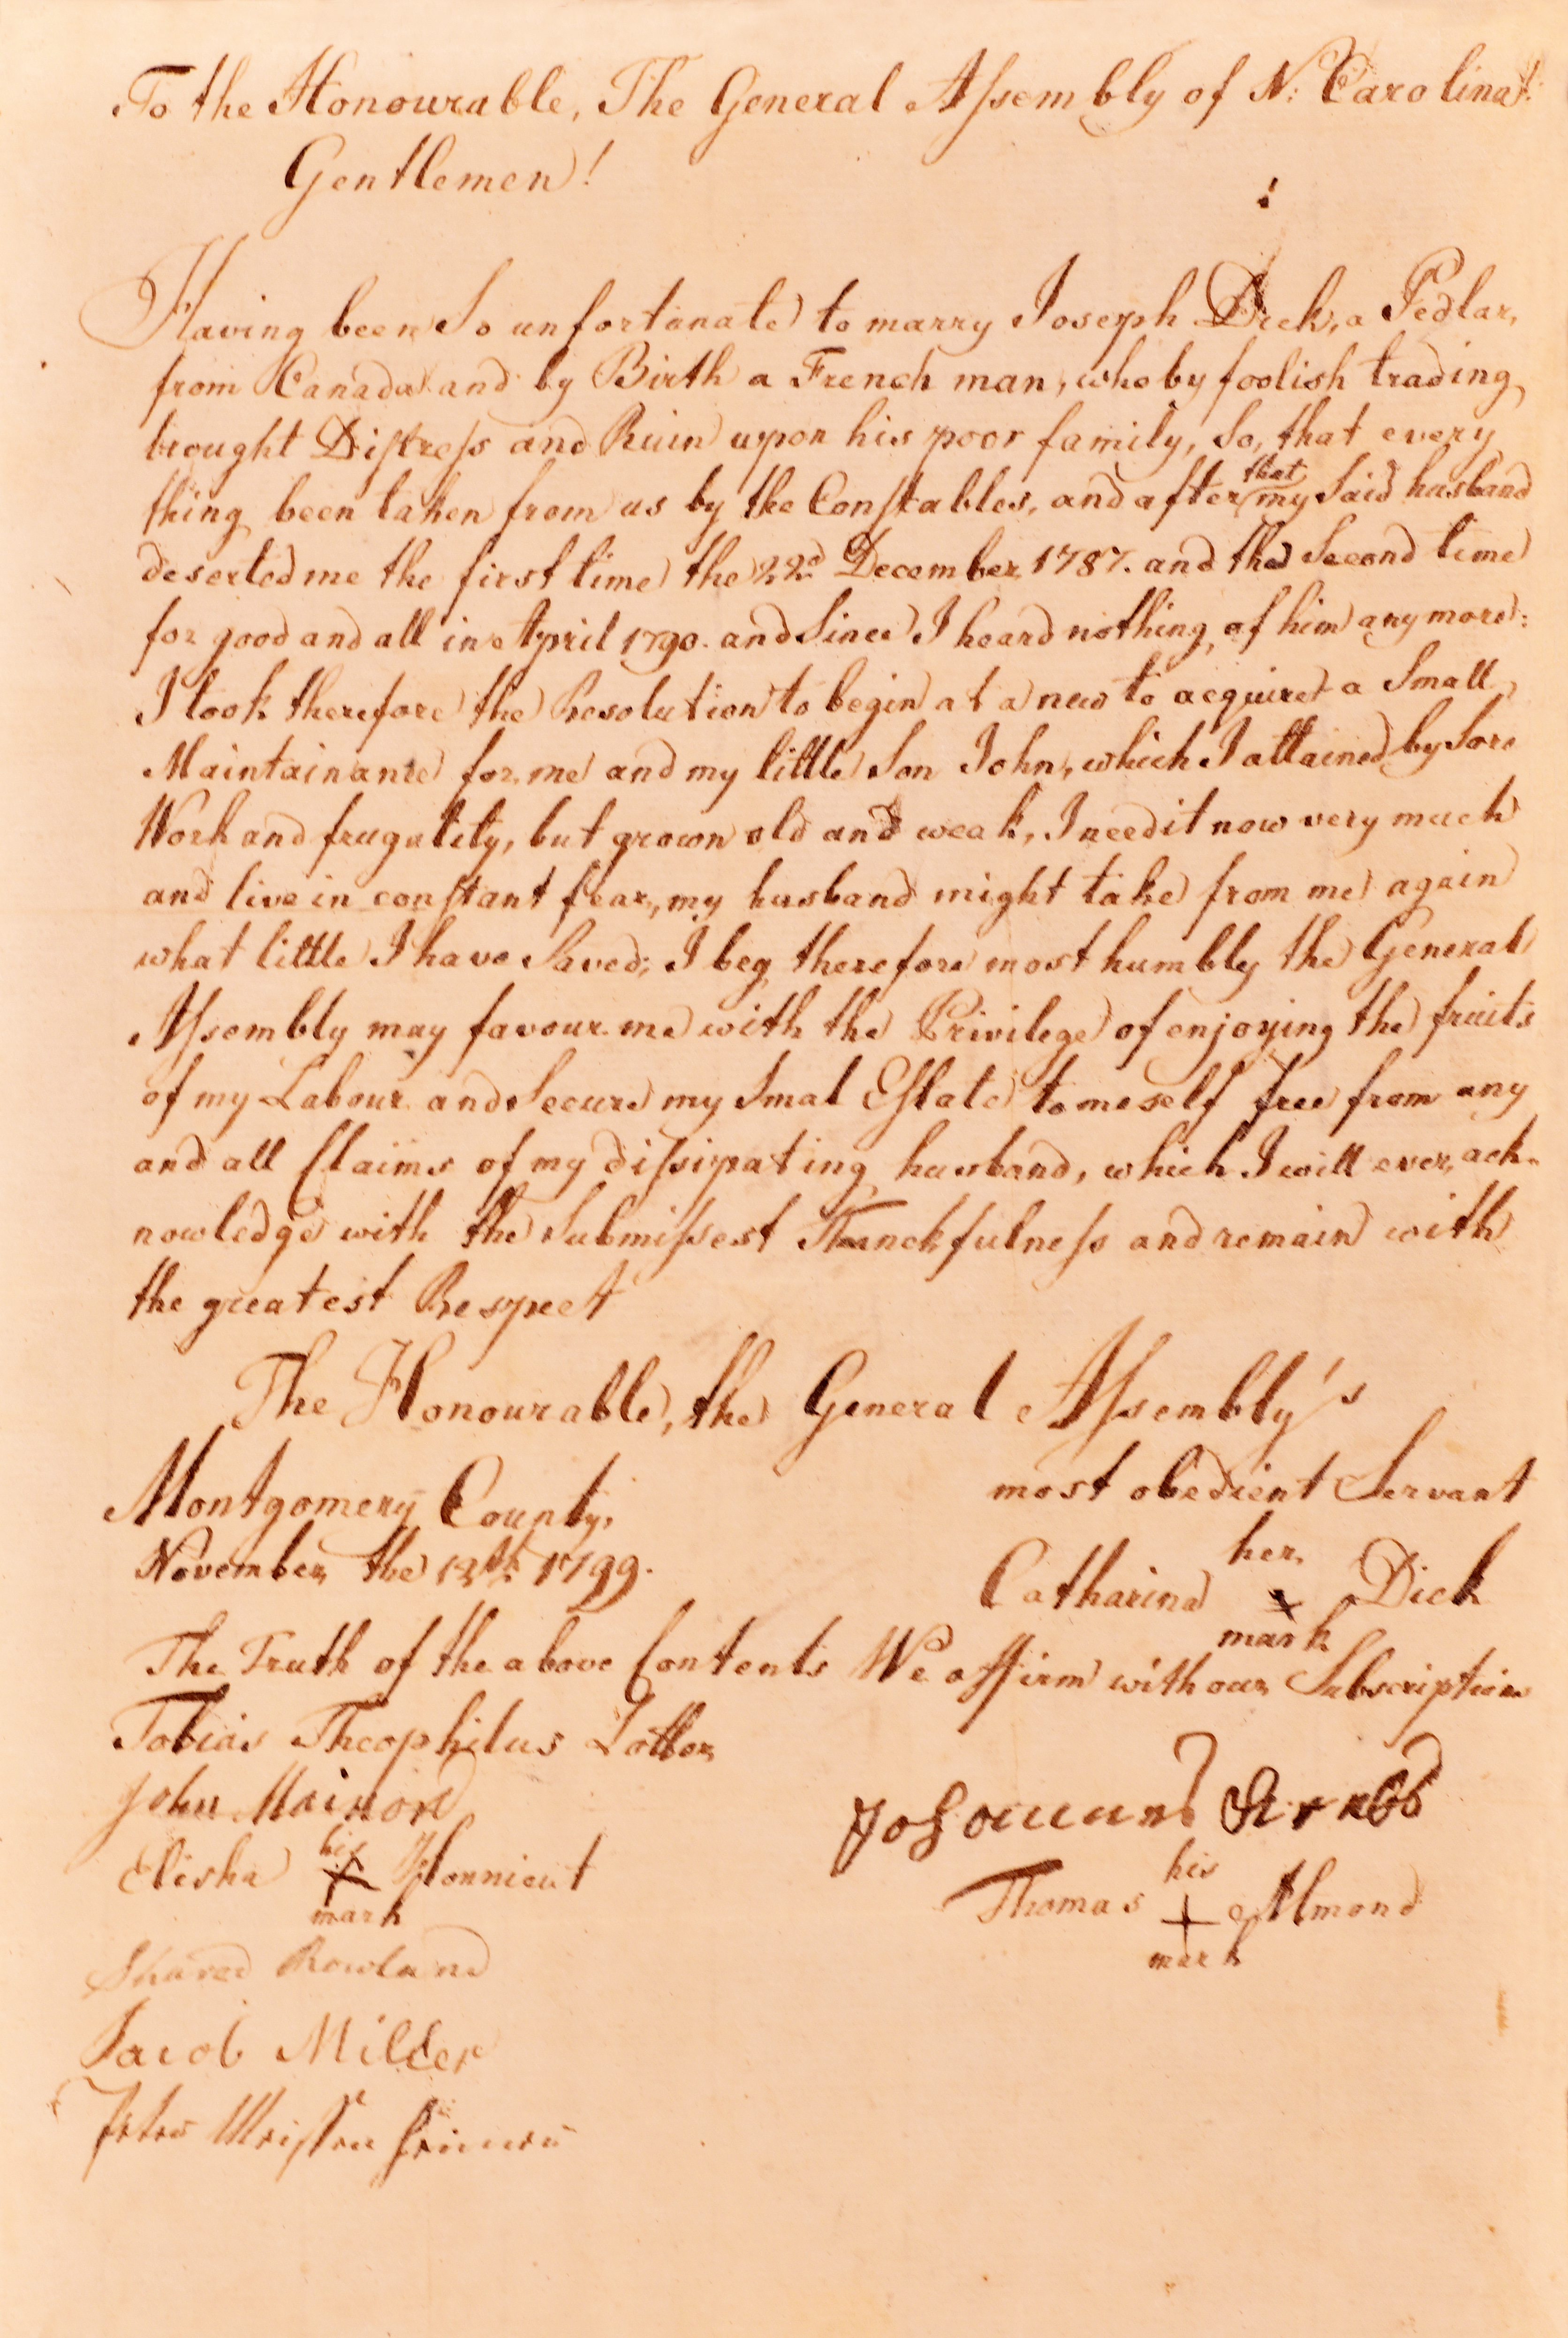 To the Honourable, The General Assembly of N: Carolina!
Gentlemen!
Having been So unfortunate to marry Joseph Dick, a Pedlar,
from Canada and by Birth a French man, who by foolish trading
brought Distress and Ruin upon his poor family, So, that every
thing been taken from us by the Constables, and after that my Said husband
deserted me the first time the 22d December 1787. and the Second time
for good and all in April 1790. and Since I heard nothing of him any more:
I took therefore the Resolution to begin at a new to acquire a Small
Maintainance for me and my little Son John, which I attained by Sore
Work and frugality, but grown old and weak, I need it now very much
and live in constant fear, my husband might take from me again
what little I have Saved; I beg therefore most humbly the General
Assembly may favour me with the Privilege of enjoying the fruits
of my Labour and Secure my Smal Estate to meself free from any
and all Claims of my dissipating husband, which I will ever ack-
nowledge with the Submissest Thanckfulness and remain with
the greatest Respect
The Honourable, the General Assembly's
most obedient Servant
Montgomery County,
November the 12th 1799.
her
Catharina x Dick
mark
The Truth of the above Contents We affirm with our Subscription
Tobias Theophilus
John
Johannes
his
Elisha x Honnicut
mark
his
Thomas + Almond
mark
Rowland
Jacob Miller
Peter